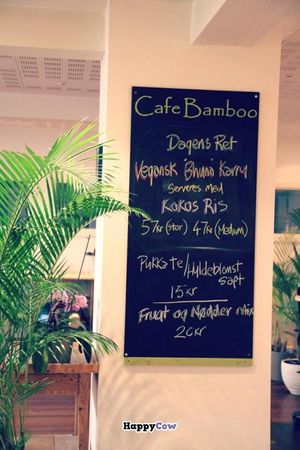 Cafe Bamboo
Dagens Ret
Vegansk 'Bhuna' Karry
serveres med
Kokos Ris
57 kr (stor) 47 kr (Medium)
Pukka te/Hyldeblomst
saft
15 kr
Frugt og Nødder mix
20 kr
HappyCow